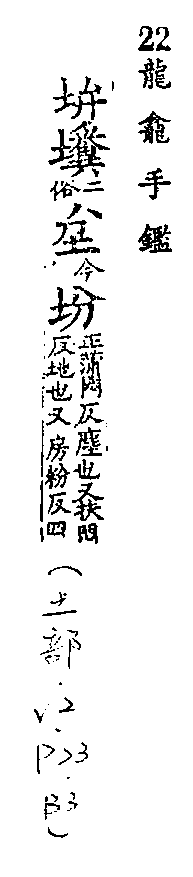 22龍龕手鑑
二俗坌今坋正蒲悶反塵也又扶問反地也又房粉反四(土部.V2.P23.B3)